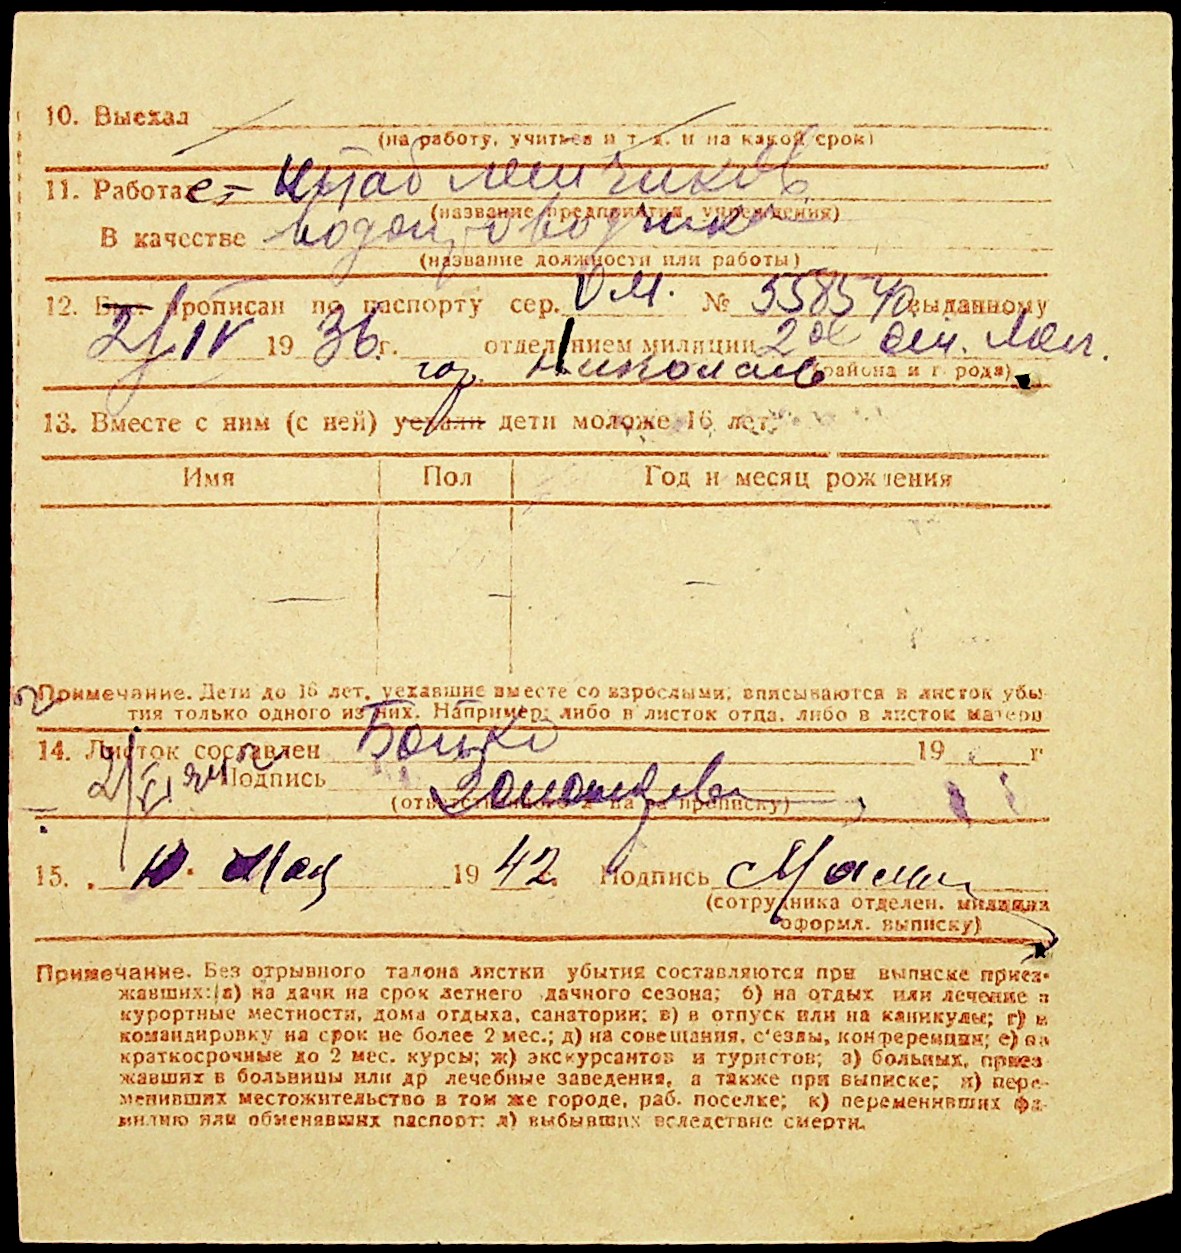 10. Выехал
(на работу, учиться и т. д. и на какой срок)
11. Работает
(название предприятия, учреждения)
В качестве
(название должности или работы)
12. Был прописан по паспорту сер. № 558540 выданному
IV 1936 г. отделением милиции 2ое
гор. Николаев (района и города)
13. Вместе с ним (с ней) уехали дети моложе 16 лет
Имя Пол Год и месяц рождения
Примечание. Дети до 16 лет, уехавшие вместе со взрослыми, вписываются в листок убы-
тия только одного из них. Например: либо в листок отца, либо в листок матери
14. Листок составлен 19 г
Подпись
(ответственного за прописку)
15. 10. Мая 1942 Подпись
(сотрудника отделен. милиции
оформл. выписку)
Примечание. Без отрывного талона листки убытия составляются при выписке приез-
жавших: а) на дачи на срок летнего дачного сезона; б) на отдых или лечение в
курортные местности, дома отдыха, санатории; в) в отпуск или на каникулы; г) в
командировку на срок не более 2 мес.; д) на совещания, с'езды, конференции; е) на
краткосрочные до 2 мес. курсы; ж) экскурсантов и туристов; з) больных, приез-
жавших в больницы или др лечебные заведения, а также при выписке; и) пере-
менивших местожительство в том же городе, раб. поселке; к) переменивших фа-
милию или обменявших паспорт; л) выбывших вследствие смерти.